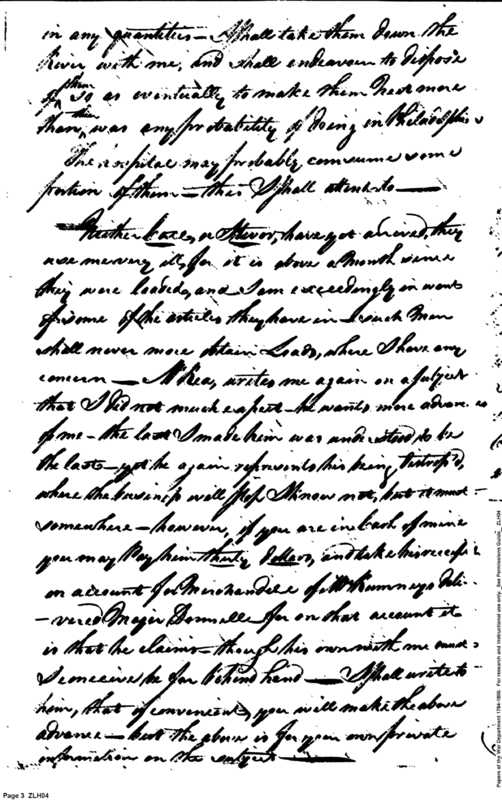 in any quantities — I shall take them down the
River with me, and shall endeavour to dispose
of them so as eventually to make them neat more
than, was any probability of doing in Philadelphia
The hospital may probably consume some
portion of them — this I shall attend to —
Neither or have got arrived, they
use me very ill, for it is above a Month since
they were loaded, and I am exceedingly in want
of some of the articles they have in — such Men
shall never more obtain Loads, where I have any
concern — McRea, writes me again on a subject
that I did not much expect — he wants more advances
of me — the last I made him was understood, to be
the last — yet he again represents his being distress'd,
where the business will stop I know not, but it must
somewhere — however, if you are in Cash of mine
you may Pay him thirty dollars, and take his receipt
on account for Merchandize of Mr Rumneys deli
-vered Major for on that account it
is that he claims — though his own with me must
I conceive be far behind hand — I shall write to
him, that if convenient, you will make the above
advance — but the above is for your own private
information on the subject —
Page 3 ZLH04
Papers of the War Department 1784-1800. For research and instructional use only. See Permissions Guide. ZLH04